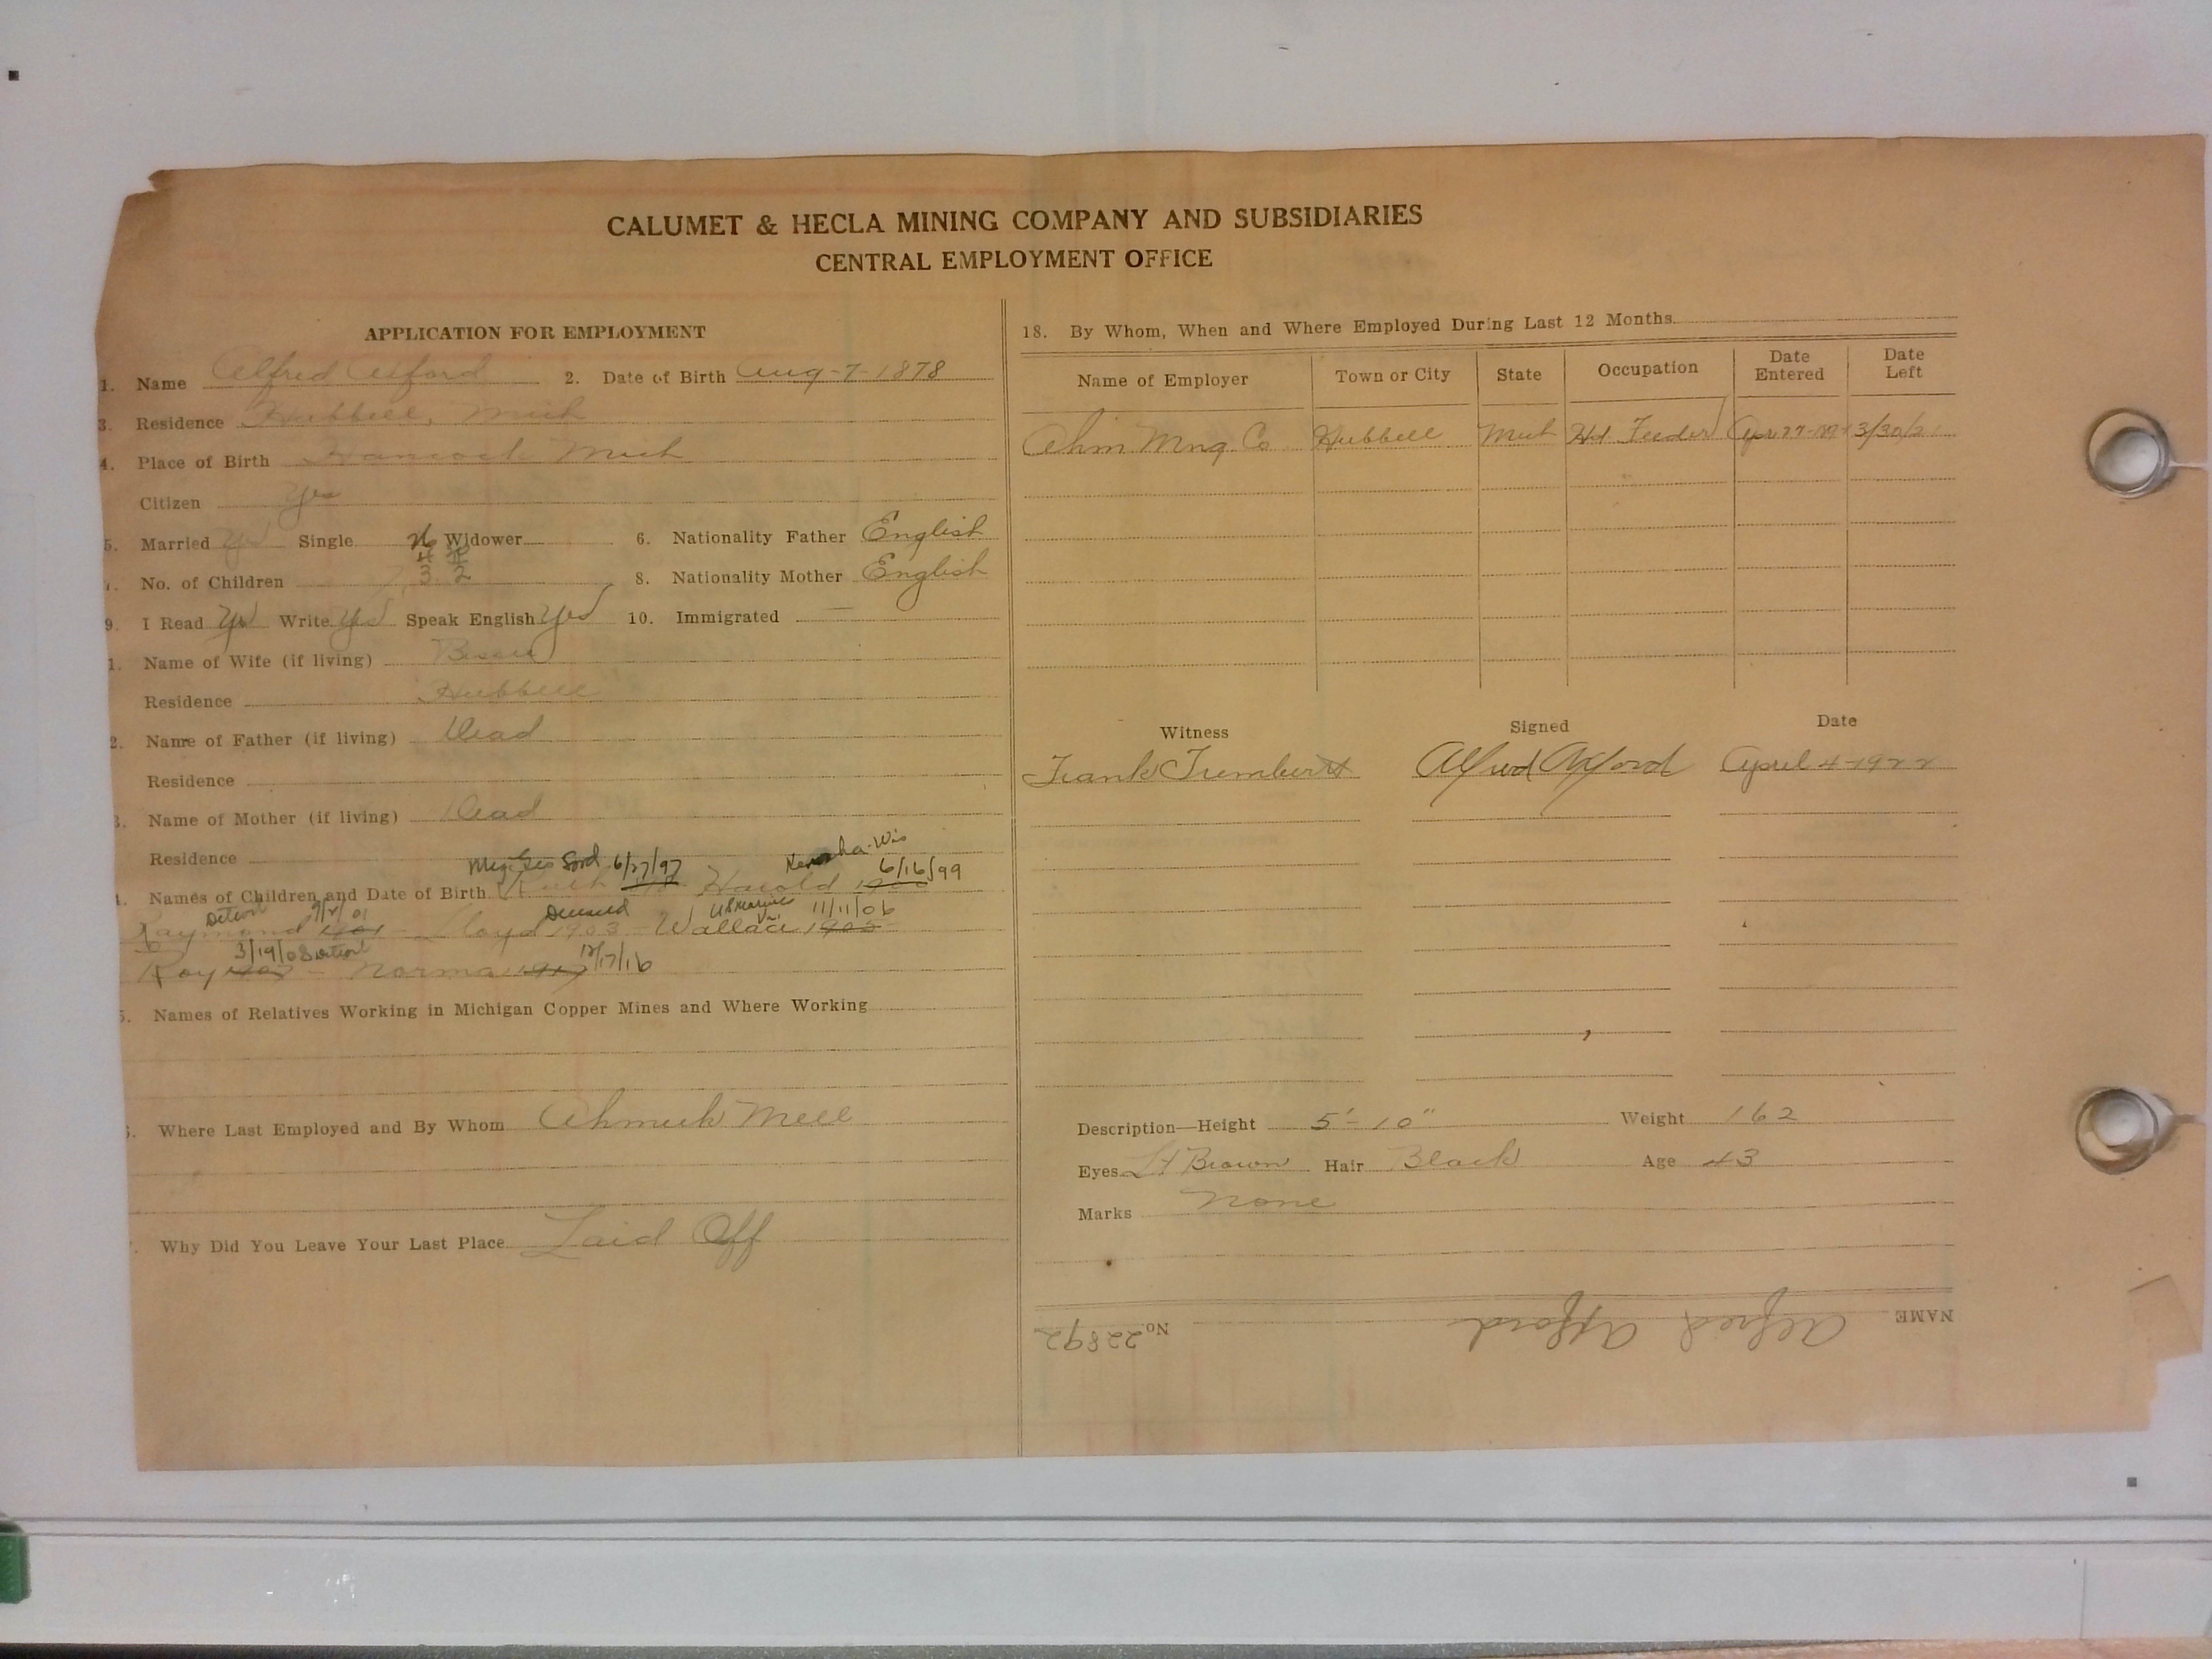 CALUMET & HECLA MINING COMPANY AND SUBSIDIARIES
CENTRAL EMPLOYMENT OFFICE
APPLICATION FOR EMPLOYMENT
1. Name Alfred Axford 2. Date of Birth Aug-7-1878
3. Residence Hubbell, Mich
4. Place of Birth Hancock Mich
Citizen Yes
5. Married Yes Single Widower 6. Nationality Father English
No. of Children 7 3 2 8. Nationality Mother English
9. I Read Yes Write Yes Speak English Yes 10. Immigrated —
1. Name of Wife (if living) Bessie
Residence Hubbell
2. Name of Father (if living) Dead
Residence
3. Name of Mother (if living) Dead
Residence
6/27/97 Kenosha-Wis 6/16/99
Names of Children and Date of Birth Ruth Harold 1900
Detroit 9/2/01 Deceased US Marines 11/11/06
Raymond 1901 - Lloyd 1903 - Wallace 1905
3/19/08 Detroit 12/17/16
Roy 1907 - Norma 1917
5. Names of Relatives Working in Michigan Copper Mines and Where Working
Where Last Employed and By Whom Ahmeek Mill
Why Did You Leave Your Last Place Laid Off
18. By Whom, When and Where Employed During Last 12 Months
Name of Employer Town or City State Occupation Date Entered Date Left
Ahm Mng Co Hubbell Mich Hd. Feeder Apr 3/30/21
Witness Signed Date
Frank Alfred Axford April 4-1922
Description—Height 5'-10" Weight 162
Eyes Lt Brown Hair Black Age 43
Marks None
NAME Alfred Axford No 22892